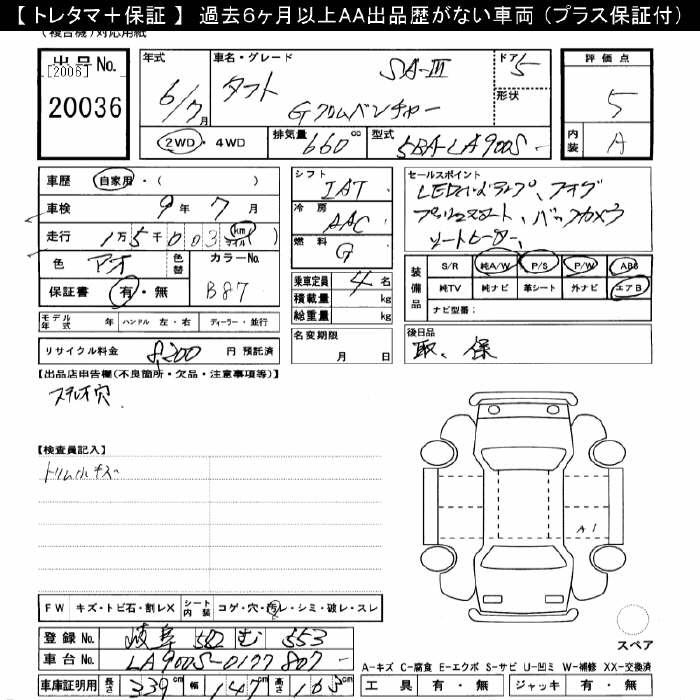 【トレタマ＋保証】 過去6ヶ月以上AA出品歴がない車両（プラス保証付）
(複合機) 対応用紙
出品No.
[2006]
20036
年式
6/7月
車名・グレード
タフト
SA-III
Gクロムベンチャー
ドア
5
形状
2WD・4WD
排気量
660cc
型式
5BA-LA900S-
評価点
5
内装
A
車歴
自家用・(　　)
車検
9年7月
走行
1万5千003km マイル
色
アオ
色替
カラーNo.
B87
保証書
有・無
モデル年式
年
ハンドル
左・右
ディーラー・並行
リサイクル料金
8,200円 預託済
シフト
IAT
冷房
AAC
燃料
G
乗車定員
4名
積載量
kg
総重量
kg
名変期限
月　日
セールスポイント
LEDヘッドランプ、フォグ
プッシュスタート、バックカメラ
シートヒーター、
装備品
S/R
純A/W
P/S
P/W
ABS
純TV
純ナビ
革シート
外ナビ
エアB
ナビ型番:
後日品
取、保
【出品店申告欄(不良箇所・欠品・注意事項等)】
ステレオ穴
【検査員記入】
トリム小キズ
A1
FW
キズ・トビ石・割レX
シート内装
コゲ・穴・汚レ・シミ・破レ・スレ
登録No.
岐阜 582 む 553
車台No.
LA900S-0177807-
車庫証明用
長さ
339cm
幅
147cm
高さ
163cm
スペア
A-キズ C-腐食 E-エクボ S-サビ U-凹ミ W-補修 XX-交換済
工具
有・無
ジャッキ
有・無